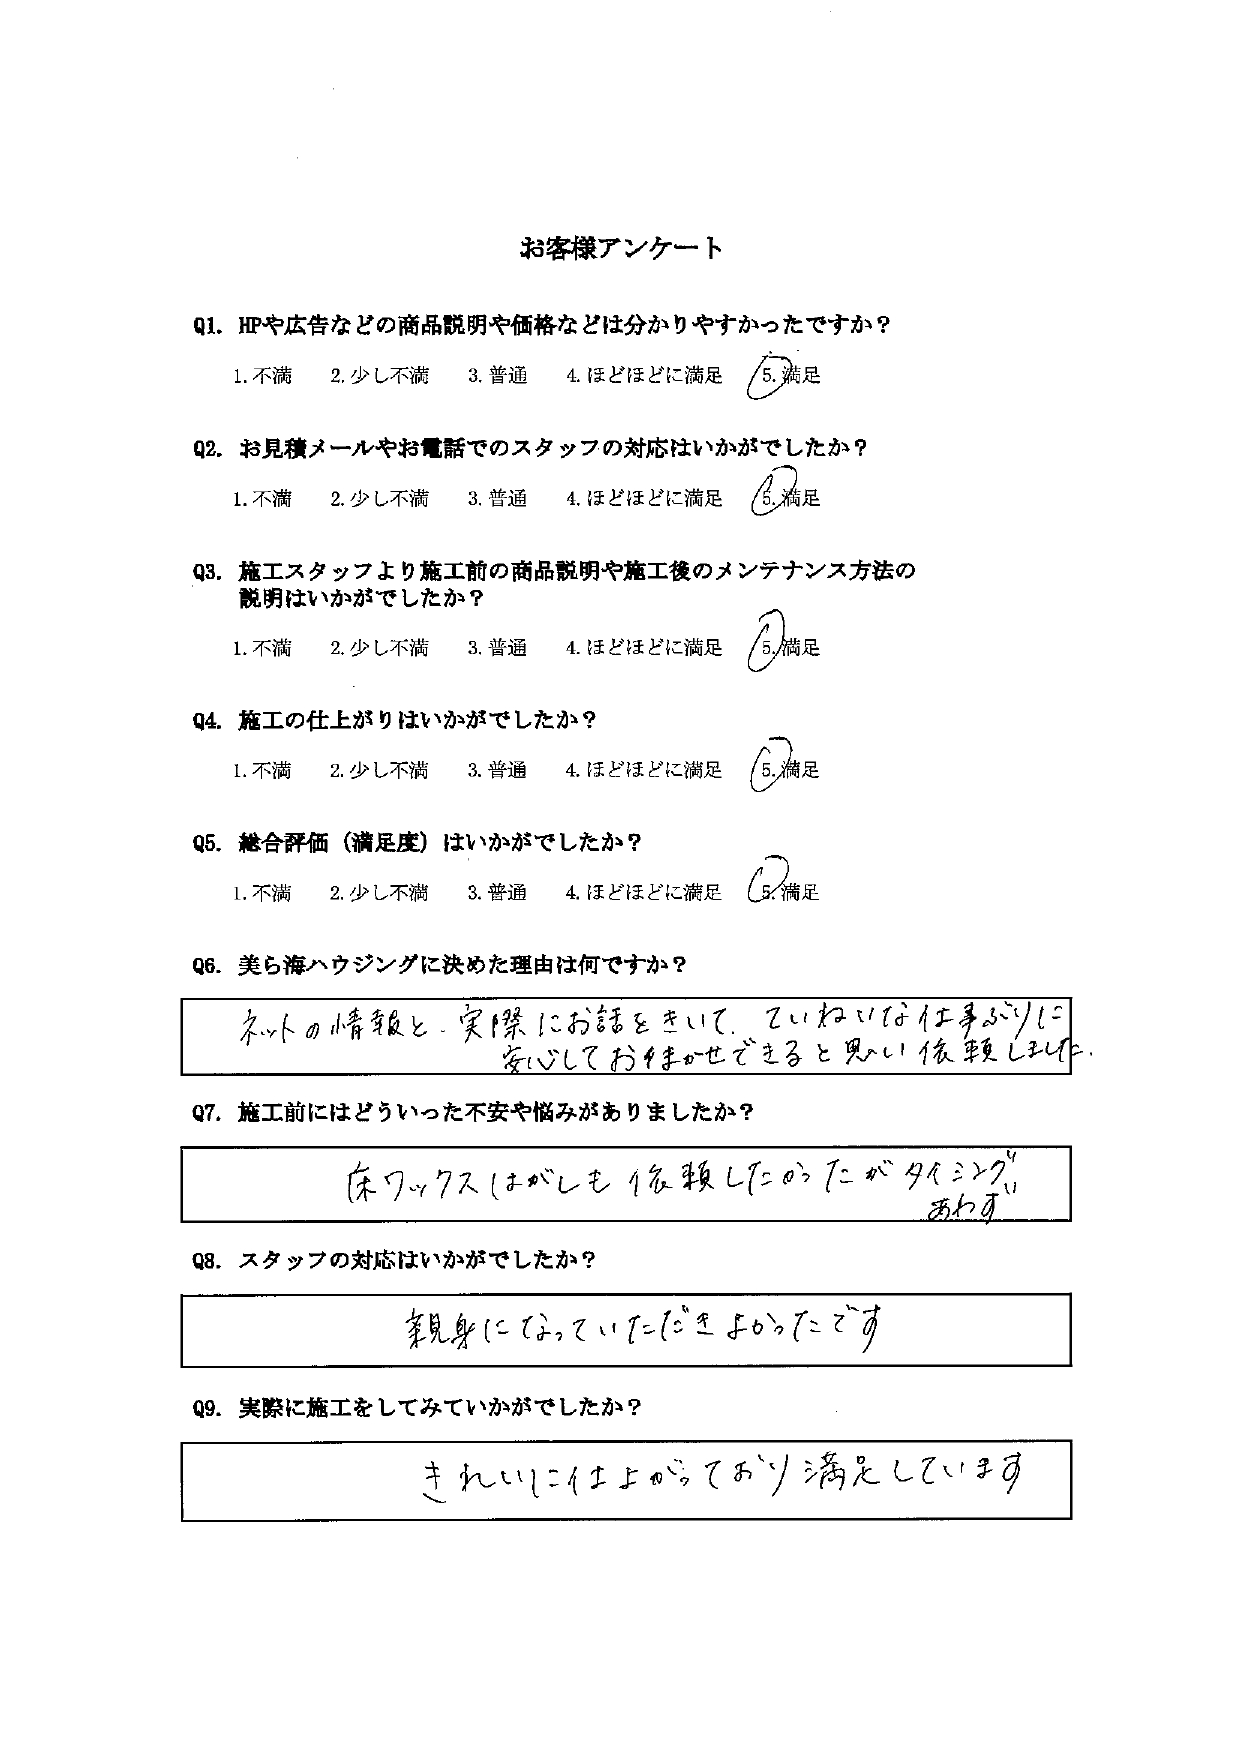 お客様アンケート
Q1. HPや広告などの商品説明や価格などは分かりやすかったですか？
1.不満 2.少し不満 3.普通 4.ほどほどに満足 5.満足
Q2. お見積メールやお電話でのスタッフの対応はいかがでしたか？
1.不満 2.少し不満 3.普通 4.ほどほどに満足 5.満足
Q3. 施工スタッフより施工前の商品説明や施工後のメンテナンス方法の
説明はいかがでしたか？
1.不満 2.少し不満 3.普通 4.ほどほどに満足 5.満足
Q4. 施工の仕上がりはいかがでしたか？
1.不満 2.少し不満 3.普通 4.ほどほどに満足 5.満足
Q5. 総合評価（満足度）はいかがでしたか？
1.不満 2.少し不満 3.普通 4.ほどほどに満足 5.満足
Q6. 美ら海ハウジングに決めた理由は何ですか？
ネットの情報と、実際にお話をきいて、ていねいな仕事ぶりに
安心しておまかせできると思い依頼しました。
Q7. 施工前にはどういった不安や悩みがありましたか？
床ワックスはがしも依頼したかったがタイミングが
あわず
Q8. スタッフの対応はいかがでしたか？
親身になっていただきよかったです
Q9. 実際に施工をしてみていかがでしたか？
きれいに仕上がっており満足しています